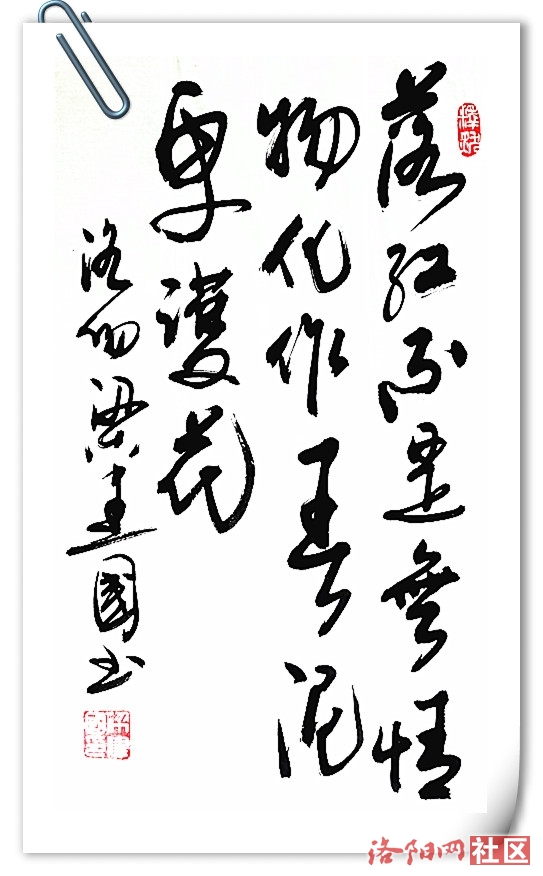 落紅不是無情
物化作春泥
更護花
洛陽梁建國书
洛阳网社区